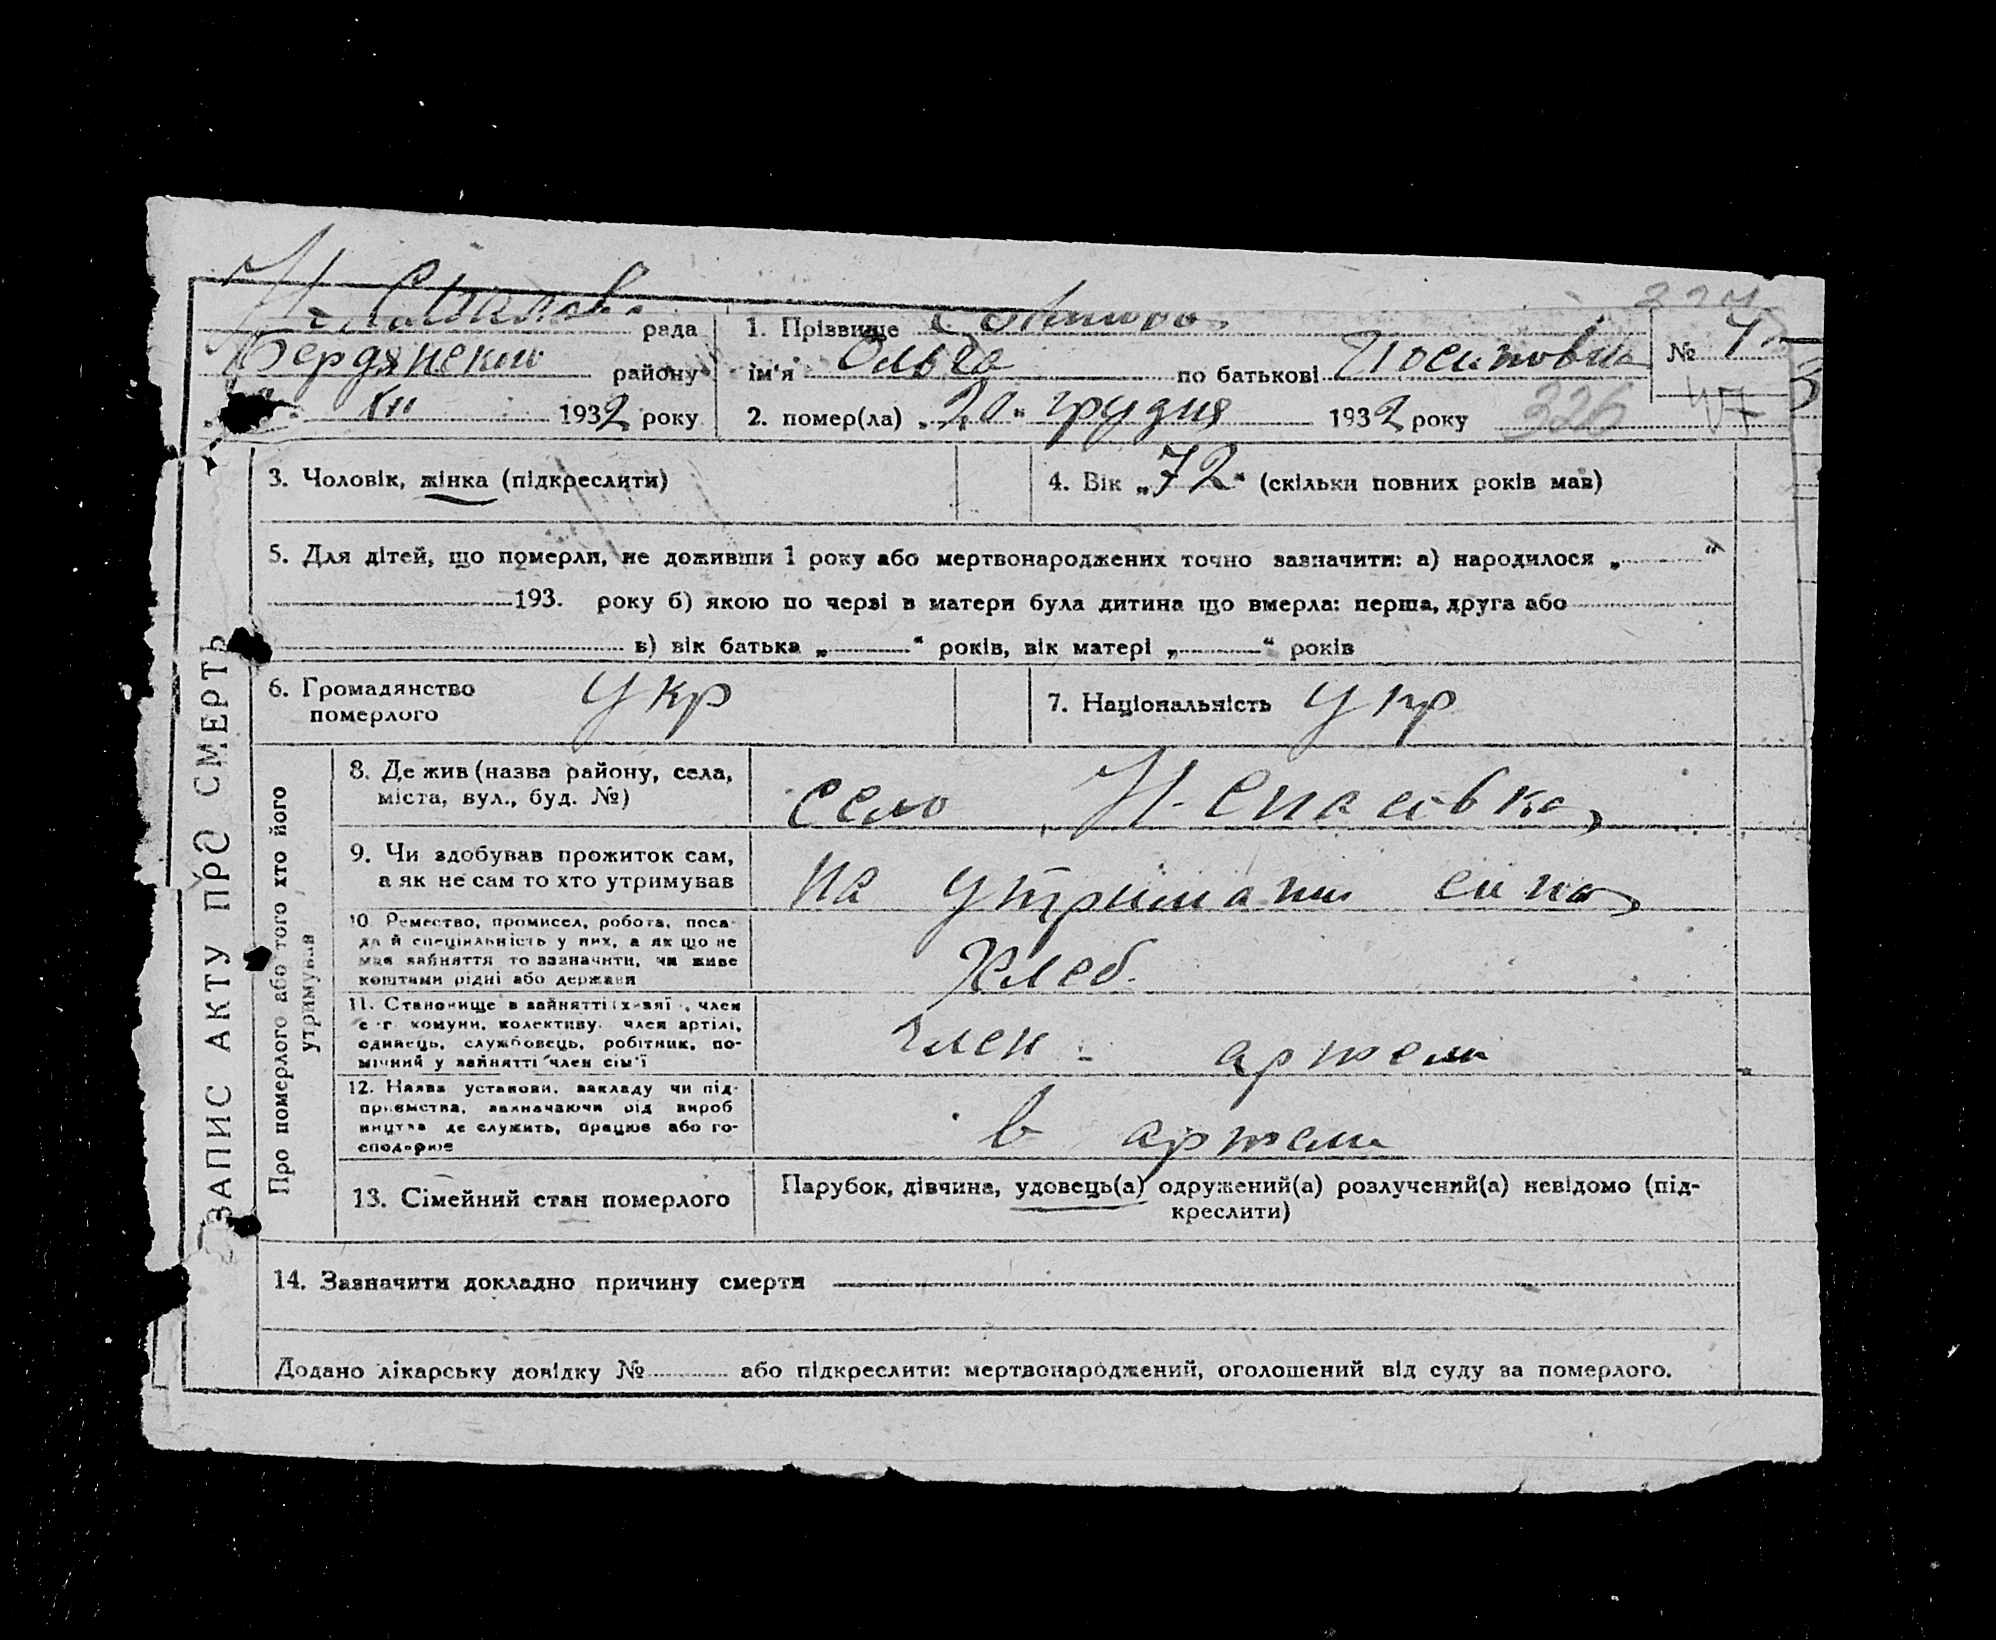 рада
Бердянський району
XII 1932 року
1. Прізвище
ім'я Ольга по батькові Йосиповна
2. помер(ла) „20" грудня 1932 року
№
326
47
3. Чоловік, жінка (підкреслити)
4. Вік „72" (скільки повних років мав)
5. Для дітей, що померли, не доживши 1 року або мертвонароджених точно зазначити: а) народилося „ "
193. року б) якою по черзі в матери була дитина що вмерла: перша, друга або
в) вік батька „ " років, вік матері „ " років
6. Громадянство
померлого
укр
7. Національність укр
ЗАПИС АКТУ ПРО СМЕРТЬ
Про померлого або того хто його
утримував
8. Де жив (назва району, села,
міста, вул., буд. №)
село Н-Спасівка,
9. Чи здобував прожиток сам,
а як не сам то хто утримував
на утриманні сина,
10. Ремество, промисел, робота, поса-
да й спеціяльність у них, а як що не
мав зайняття то зазначити, чи живе
коштами рідні або держави
Хлеб.
11. Становище в зайнятті (х-зяї , член
с-г комуни, колективу, член артілі,
одинець, службовець, робітник, по-
мічний у зайнятті член сім'ї
член - артели
12. Назва установи, закладу чи під-
приємства, зазначаючи рід вироб
ництва де служить, працює або го-
сподарює
в артели
13. Сімейний стан померлого
Парубок, дівчина, удовець(а) одружений(а) розлучений(а) невідомо (під-
креслити)
14. Зазначити докладно причину смерти
Додано лікарську довідку № або підкреслити: мертвонароджений, оголошений від суду за померлого.